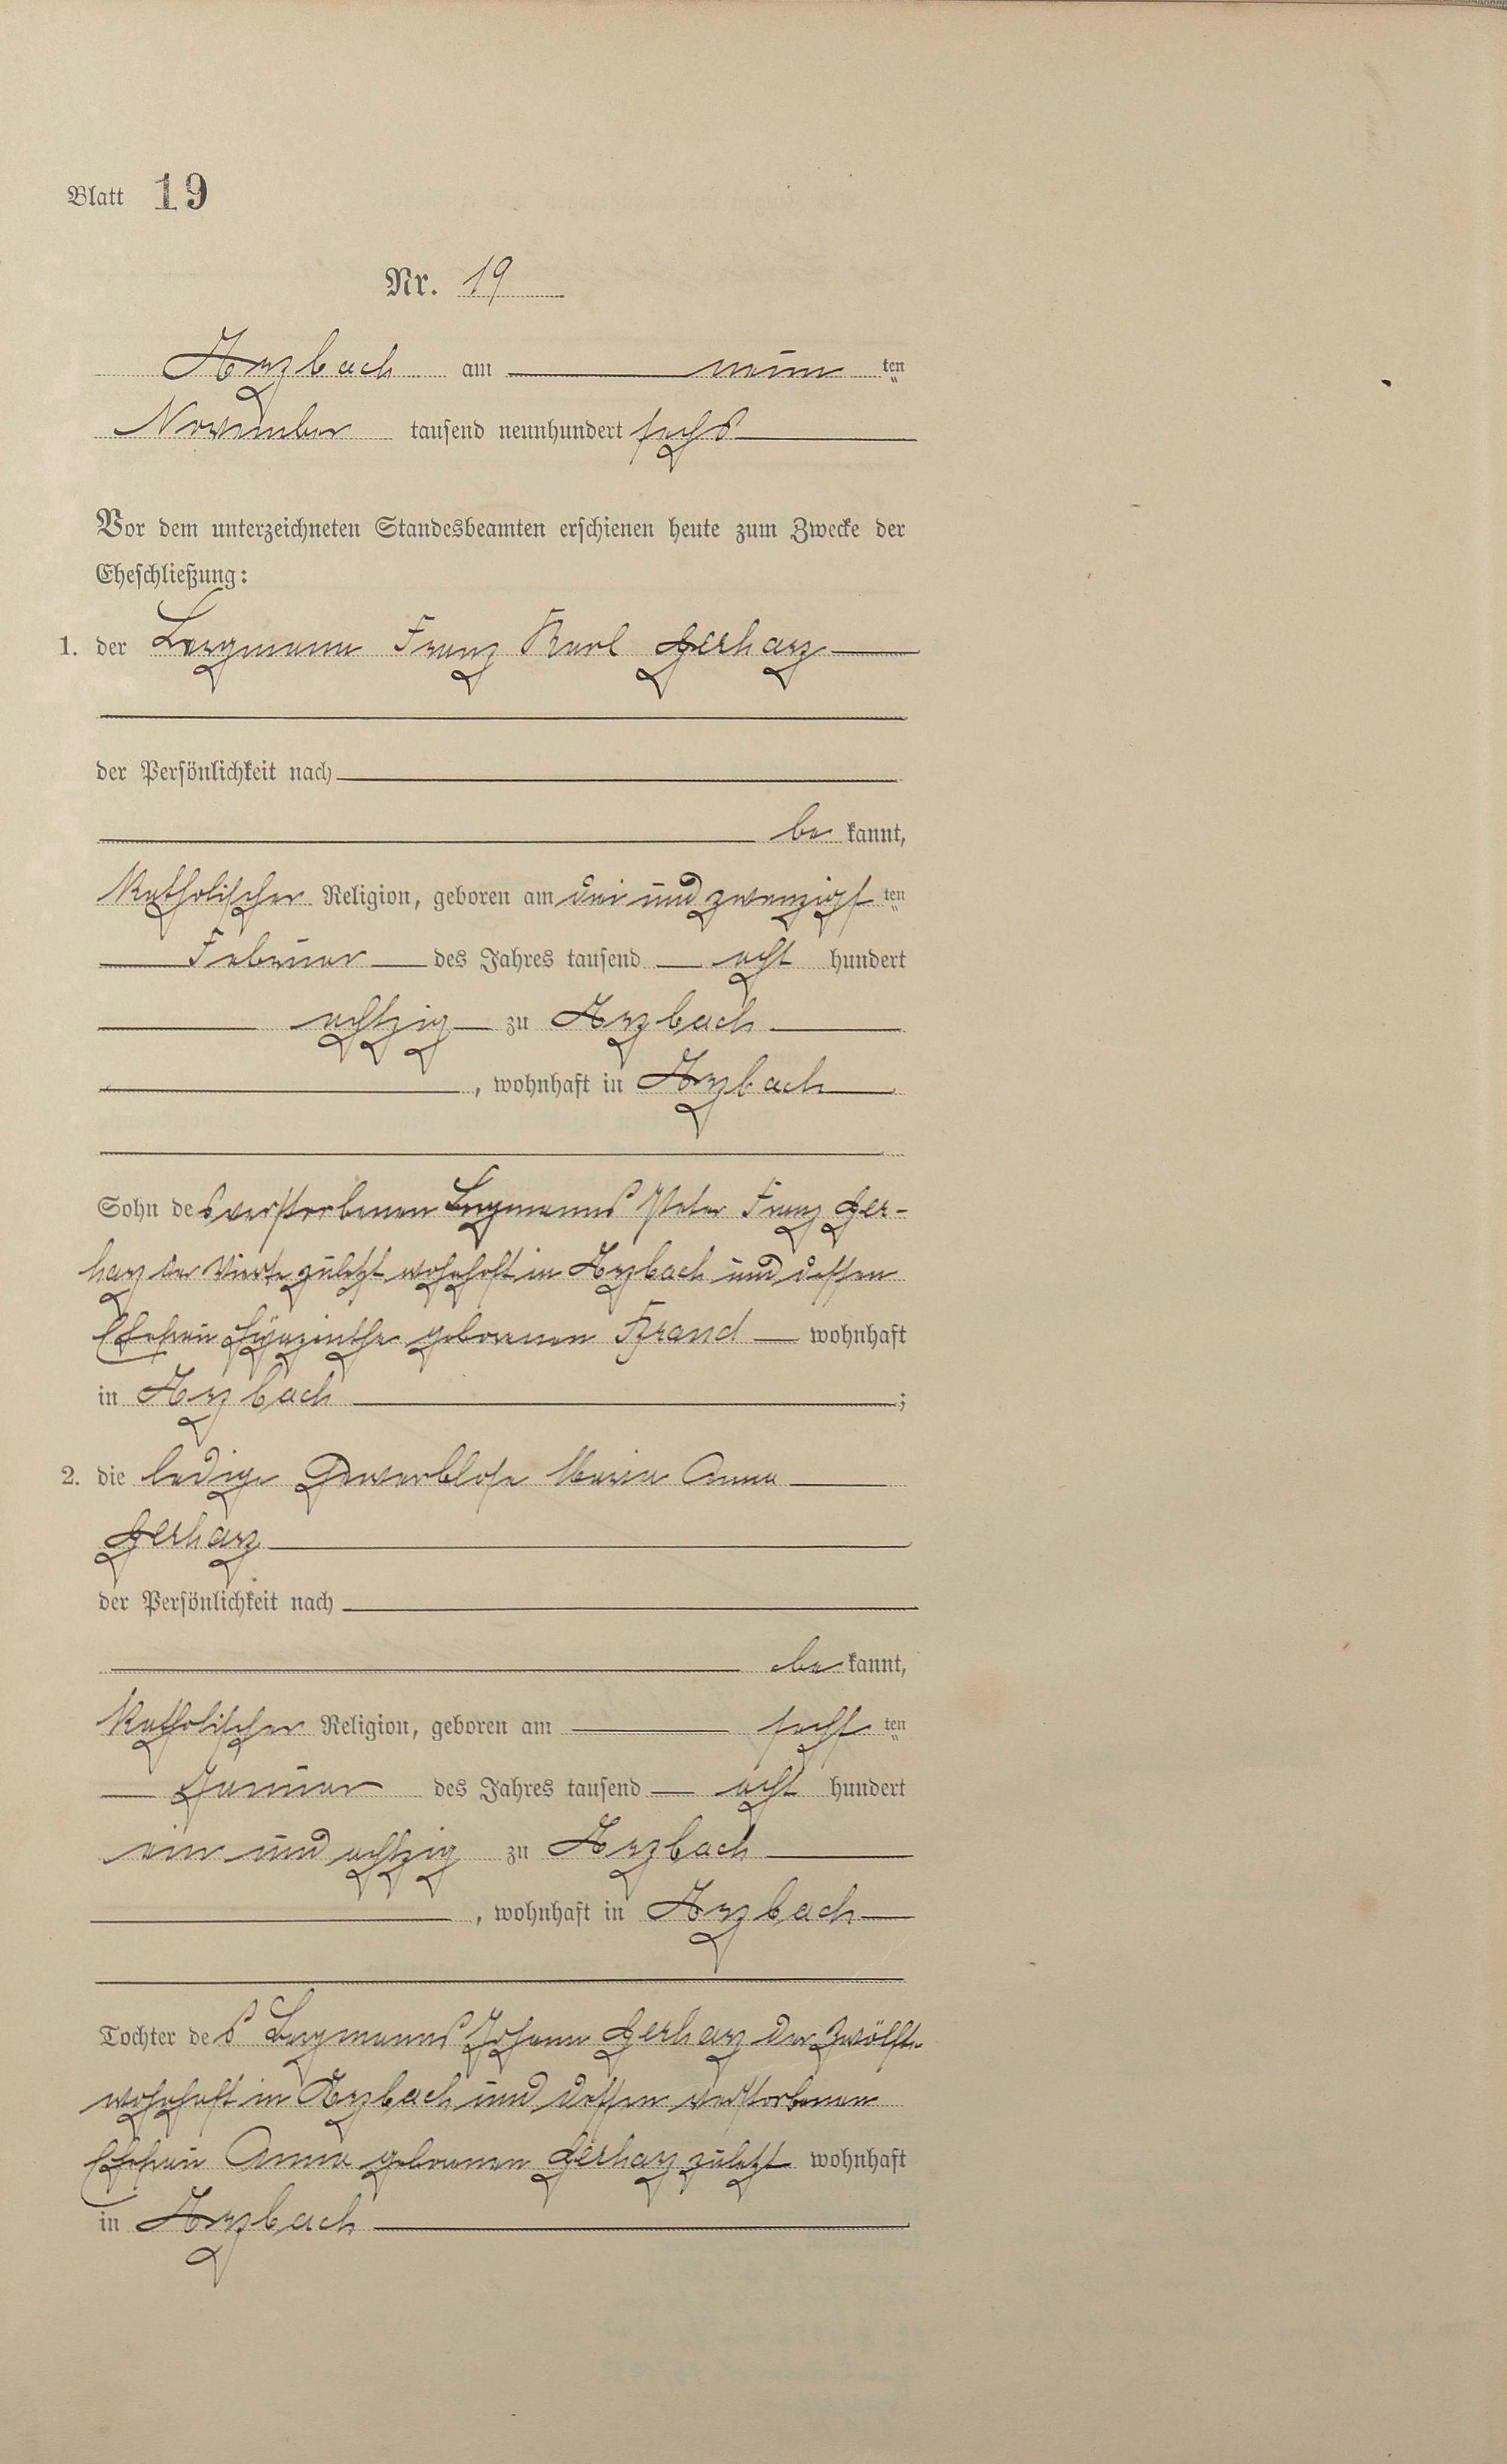 Blatt 19
Nr. 19
Arzbach am neun ten
November tausend neunhundert sechs
Vor dem unterzeichneten Standesbeamten erschienen heute zum Zwecke der
Eheschließung:
1. der Bergmann Franz Karl Gerharz
der Persönlichkeit nach
be kannt,
katholischer Religion, geboren am drei und zwanzigs ten
Februar des Jahres tausend acht hundert
achtzig zu Arzbach
, wohnhaft in Arzbach
Sohn des verstorbenen Bergmanns Peter Franz Ger-
harz der Vierte zuletzt wohnhaft in Arzbach und dessen
Ehefrau Hyazinthe geborenen Brand wohnhaft
in Arzbach ;
2. die ledige Gewerblose Maria Anna
Gerharz
der Persönlichkeit nach
be kannt,
katholischer Religion, geboren am sechs ten
Januar des Jahres tausend acht hundert
ein und achtzig zu Arzbach
, wohnhaft in Arzbach
Tochter des Bergmanns Johann Gerharz der Zwölfte
wohnhaft in Arzbach und dessen verstorbenen
Ehefrau Anna geborenen Gerharz zuletzt wohnhaft
in Arzbach